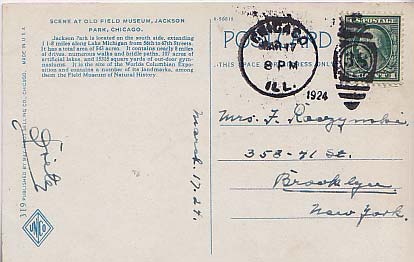 SCENE AT OLD FIELD MUSEUM, JACKSON
PARK, CHICAGO.
Jackson Park is located on the south side, extending
1 1-8 miles along Lake Michigan from 56th to 67th Streets.
It has a total area of 542 acres. It contains nearly 9 miles
of drives, numerous walks and bridle paths, 107 acres of
artificial lakes, and square yards of out-door gym-
nasiums. It is the site of the Worlds Columbian Expo-
sition and contains a number of its landmarks, among
them the Field Museum of Natural History.
MADE IN U.S.A.
319 PUBLISHED BY CHICAGO.
UNICO
POST CARD
THIS SPACE FOR ADDRESS ONLY
CHICAGO
MAR 17
8 PM
ILL.
1924
U.S. POSTAGE
March 17, 24.
Mrs. F. Raczynski
358-71 St.
Brooklyn
New York.